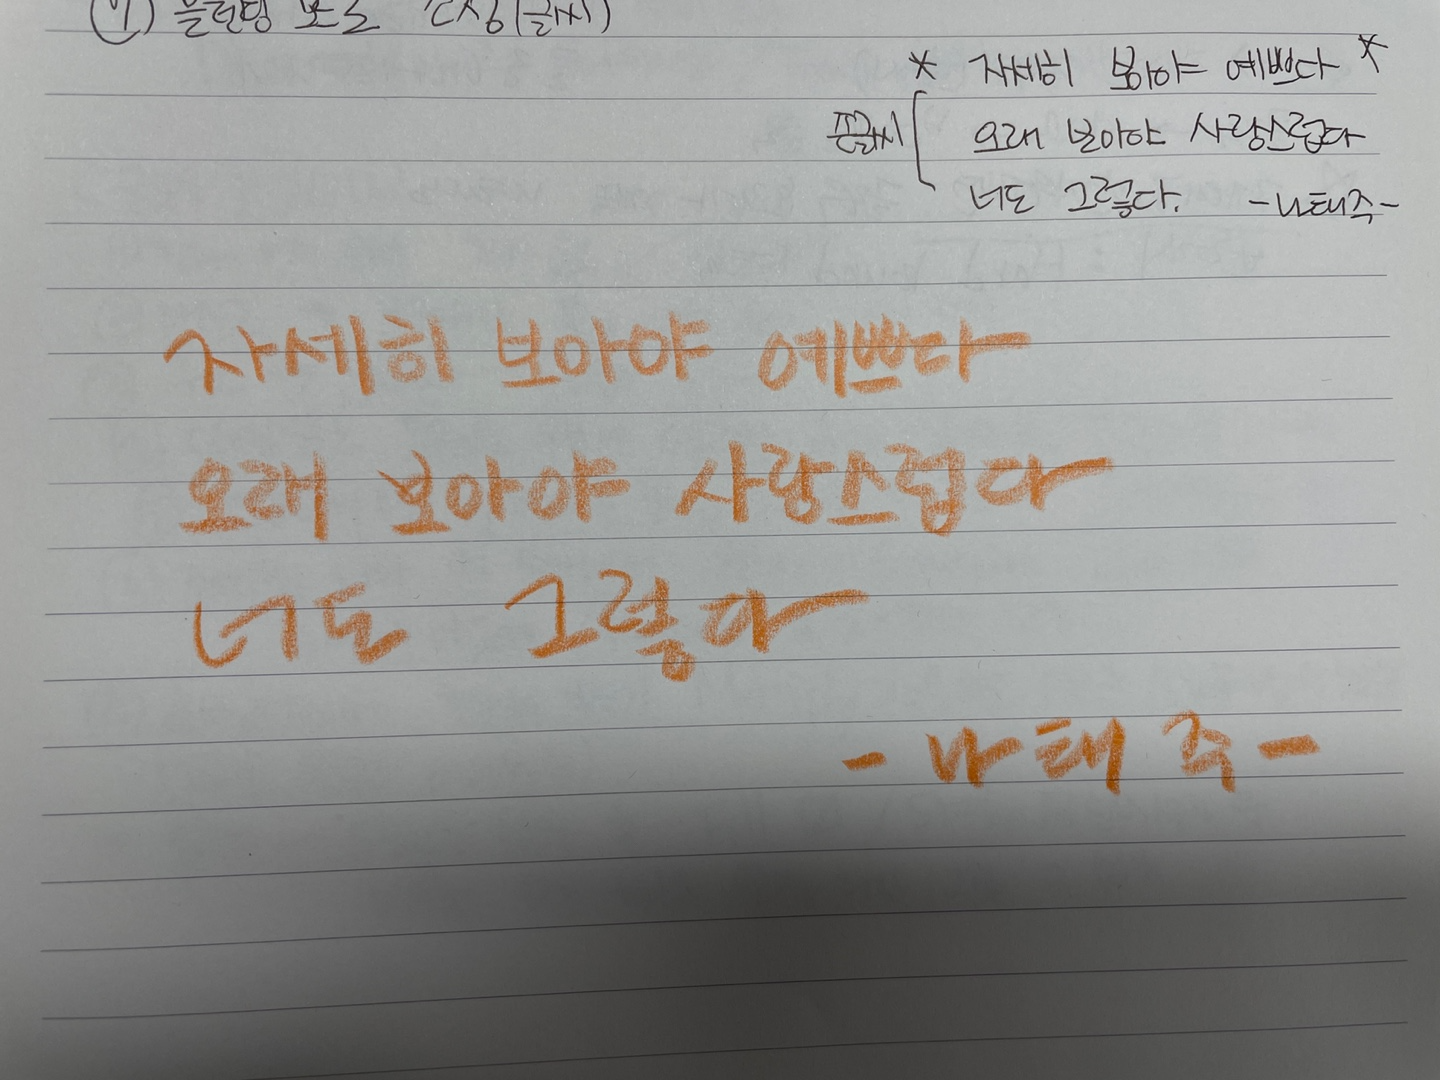 (글씨)
* 자세히 보아야 예쁘다 *
글씨 오래 보아야 사랑스럽다
너도 그렇다. -나태주-
자세히 보아야 예쁘다
오래 보아야 사랑스럽다
너도 그렇다
- 나태주 -